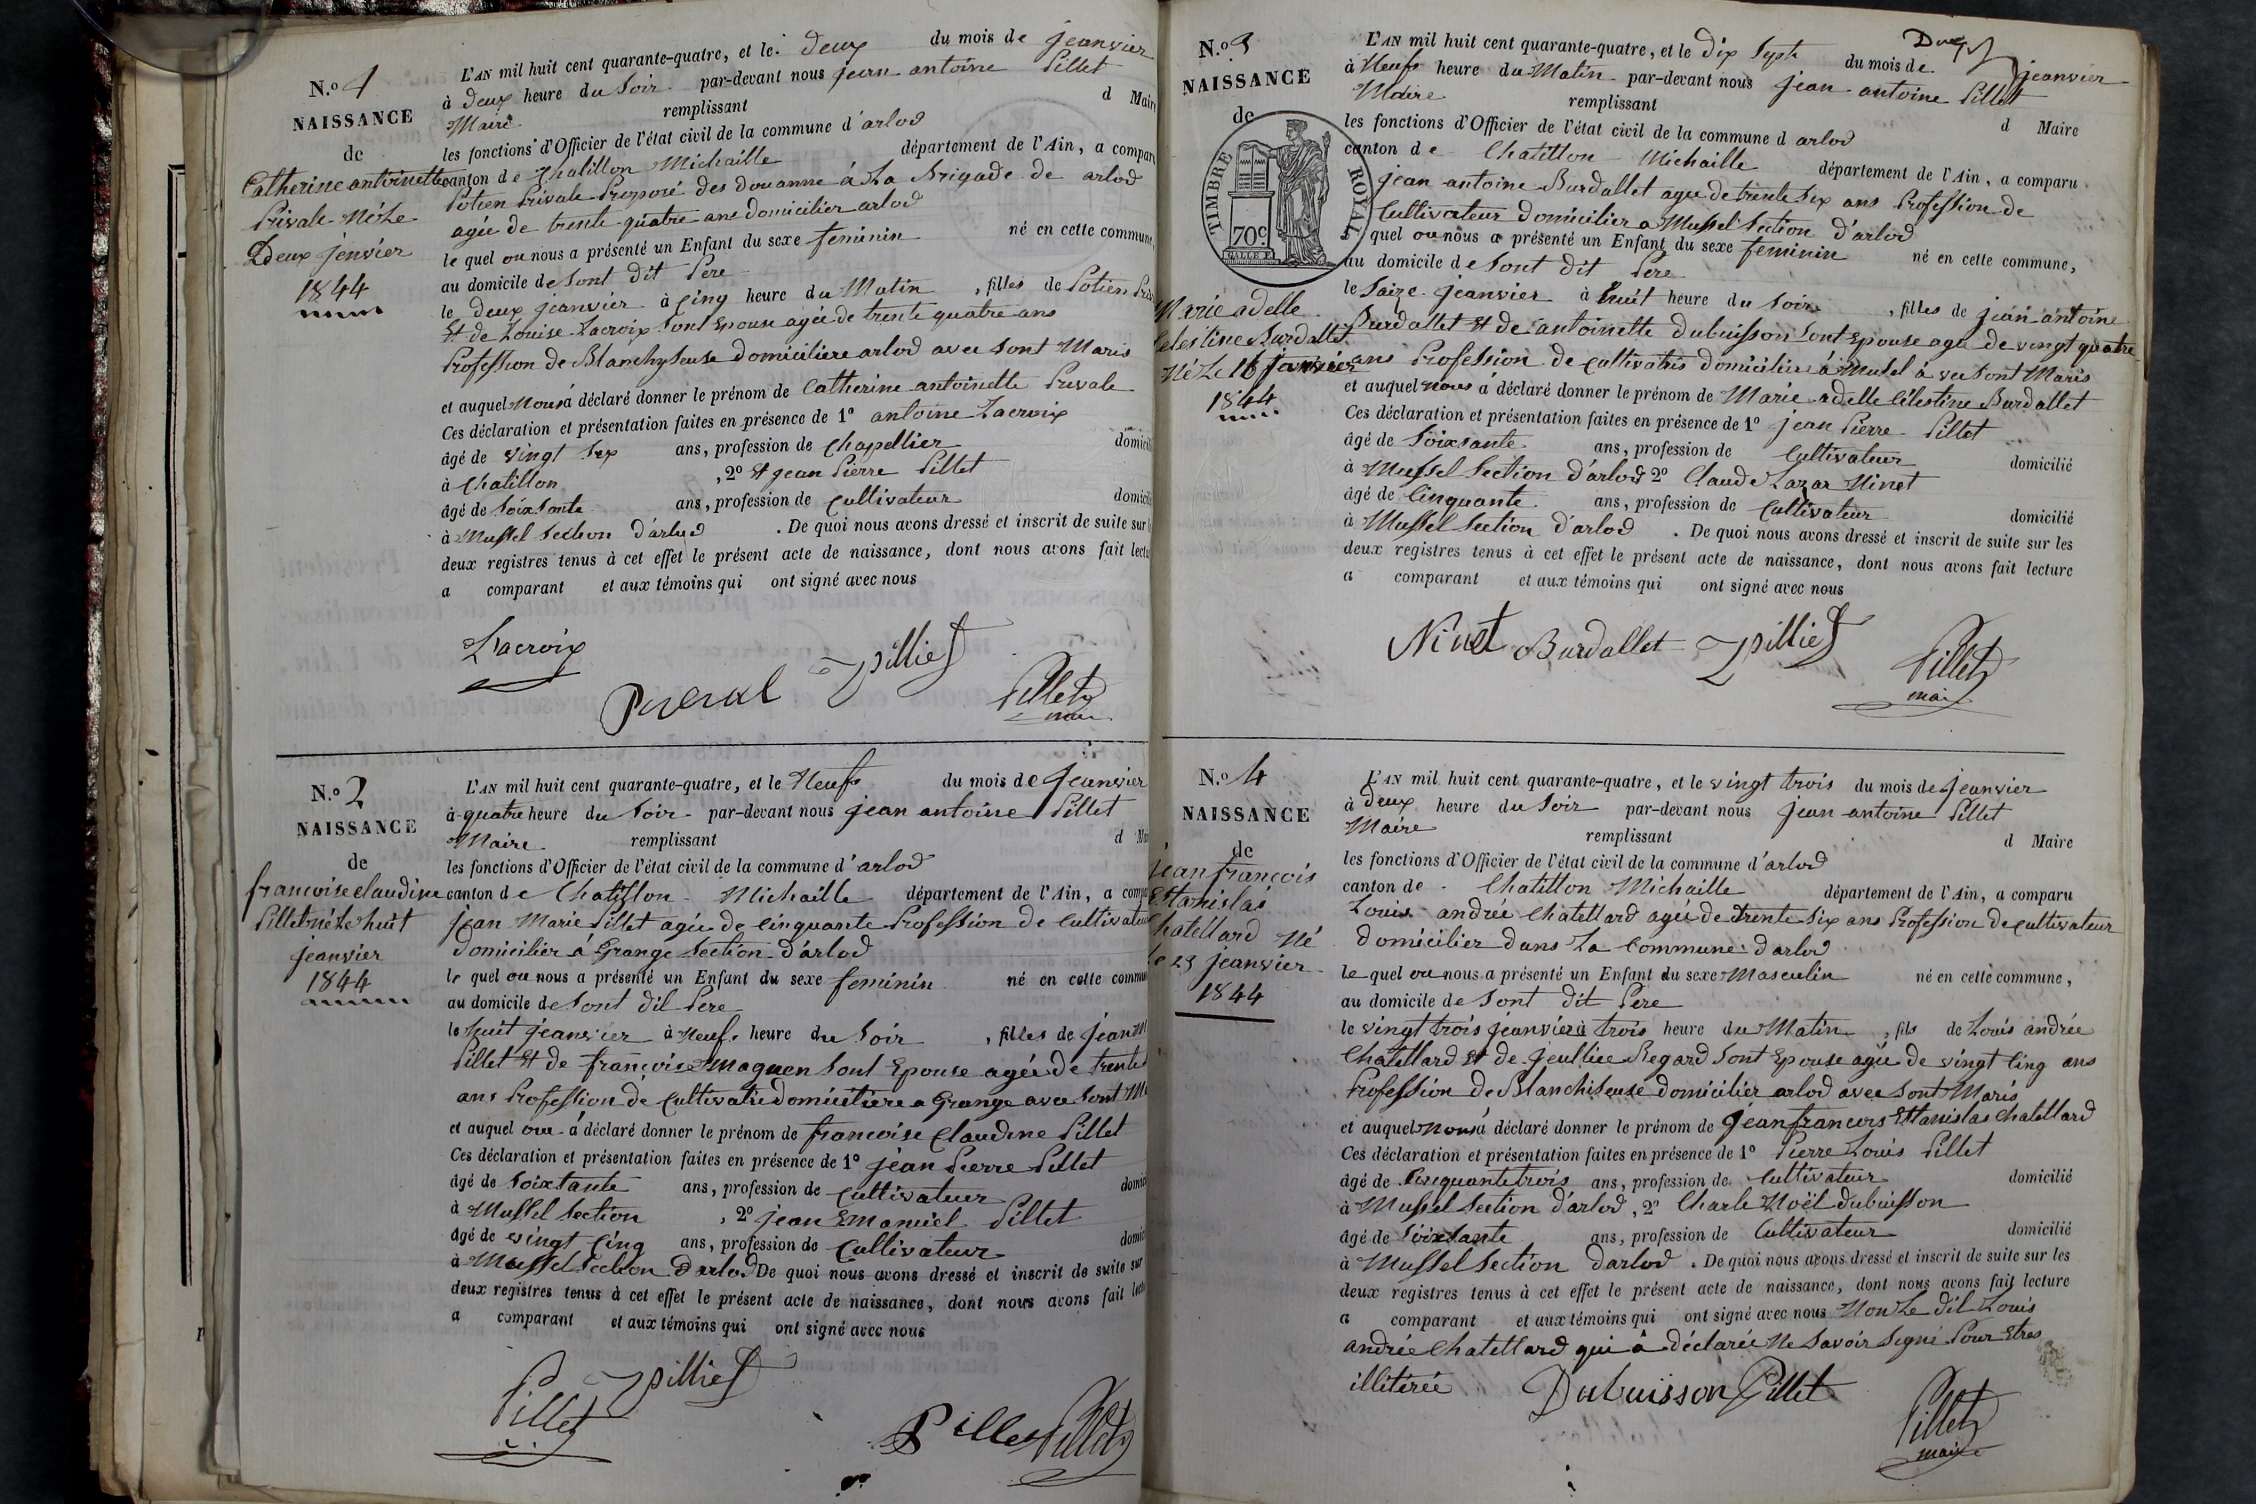 N.º 1
NAISSANCE
de
Catherine antoinette
Privale Née Le
Deux jenvier
1844
L'AN mil huit cent quarante-quatre, et le deux du mois de jeanvier
à deux heure du Soir par-devant nous jean antoine Pillet
Maire remplissant d Maire
les fonctions d'Officier de l'état civil de la commune d'arlod
canton de Chatillon Michaille département de l'Ain, a compar
Potien Privale Preposé des douanne á La Brigade de arlod
agée de trente quatre ans domicilier arlod
le quel ou nous a présenté un Enfant du sexe feminin né en cette commune,
au domicile de Sont dit Pere
le deux jeanvier à Cinq heure du Matin, filles de Potien Priv
Et de Louise Lacroix Sont Epouse agée de trente quatre ans
Profession de Blanchyseuse domiciliere arlod avec Sont Maris
et auquel Nous á déclaré donner le prénom de Catherine antoinette Prevale
Ces déclaration et présentation faites en présence de 1º antoine Lacroix
âgé de vingt Sex ans, profession de Chapellier domicil
à Chatillon, 2º Et jean Pierre Pillet
âgé de Soixsante ans, profession de Cultivateur domicil
à Mussel Section d'arlod. De quoi nous avons dressé et inscrit de suite sur l
deux registres tenus à cet effet le présent acte de naissance, dont nous avons fait lectu
a comparant et aux témoins qui ont signé avec nous
Lacroix
Preval Pillet
Pillet
maire
N.º 2
NAISSANCE
de
francoise claudine
Pillet née Le huit
jeanvier
1844
L'AN mil huit cent quarante-quatre, et le Neufs du mois de Jeanvier
à quatre heure du Soir par-devant nous jean antoine Pillet
Maire remplissant d Mai
les fonctions d'Officier de l'état civil de la commune d'arlod
canton de Chatillon Michaille département de l'Ain, a compa
jean Marie Pillet agée de Cinquante Profession de Cultivateur
domicilier á Grange Section d'arlod
le quel ou nous a présenté un Enfant du sexe feminin né en cette commu
au domicile de Sont dit Pere
le huit jeanvier à Neufs heure du Soir, filles de jean M
Pillet Et de françoise Maguen Sont Epouse agée de trente
ans Profession de Cultivatis domiciliere a Grange avec Sont Ma
et auquel ou á déclaré donner le prénom de francoise Claudine Pillet
Ces déclaration et présentation faites en présence de 1º jean Pierre Pillet
âgé de Soixtante ans, profession de Cultivateur domici
à Mussel Section, 2º jean Emanuel Pillet
âgé de vingt Cinq ans, profession de Cultivateur domic
à Mussel Section d'arlod De quoi nous avons dressé et inscrit de suite sur
deux registres tenus à cet effet le présent acte de naissance, dont nous avons fait lectu
a comparant et aux témoins qui ont signé avec nous
Pillet Pillet
Pillet Pillet
N.º 3
NAISSANCE
de
TIMBRE ROYAL
70c
Marie adelle
Celestine Burdallet
Née Le 16 jeanvier
1844
L'AN mil huit cent quarante-quatre, et le dix Sept du mois de jeanvier
à Neufs heure du Matin par-devant nous jean antoine Pillet
Maire remplissant d Maire
les fonctions d'Officier de l'état civil de la commune d arlod
canton de Chatillon Michaille département de l'Ain, a comparu
jean antoine Burdallet agée de trente Six ans Profession de
Cultivateur domicilier a Mussel Section d'arlod
quel ou nous a présenté un Enfant du sexe feminin né en cette commune,
au domicile de Sont dit Pere
le Saize jeanvier à huit heure du Soir, filles de jean antoine
Burdallet Et de antoinette dubuisson Sont Epouse agée de vingt quatre
ans Profession de Cultivatris domiciliere á Musel á vec Sont Maris
et auquel nous á déclaré donner le prénom de Marie adelle Célestine Burdallet
Ces déclaration et présentation faites en présence de 1º jean Pierre Pillet
âgé de Soixsante ans, profession de Cultivateur domicilié
à Mussel Section d'arlod 2º Claude Lazar Ninet
âgé de Cinquante ans, profession de Cultivateur domicilié
à Mussel Section d'arlod. De quoi nous avons dressé et inscrit de suite sur les
deux registres tenus à cet effet le présent acte de naissance, dont nous avons fait lecture
a comparant et aux témoins qui ont signé avec nous
Ninet Burdallet Pillet
Pillet
maire
N.º 4
NAISSANCE
de
jean françois
Estanislas
Chatellard Né
le 23 jeanvier
1844
L'AN mil huit cent quarante-quatre, et le vingt trois du mois de jeanvier
à deux heure du Soir par-devant nous jean antoine Pillet
Maire remplissant d Maire
les fonctions d'Officier de l'état civil de la commune d'arlod
canton de Chatillon Michaille département de l'Ain, a comparu
Louis andrée Chatellard agée de trente Six ans Profession de cultivateur
domicilier dans La Commune d'arlod
le quel ou nous a présenté un Enfant du sexe Masculin né en cette commune,
au domicile de Sont dit Pere
le vingt trois jeanvier à trois heure du Matin, fils de Louis andrée
Chatellard Et de jeulliee Regard Sont Epouse agée de vingt Cinq ans
Profession de Blanchiseuse domicilier arlod avec Sont Maris
et auquel Nous á déclaré donner le prénom de Jean francois Estanislas Chatellard
Ces déclaration et présentation faites en présence de 1º Pierre Louis Pillet
âgé de Cinquante trois ans, profession de Cultivateur domicilié
à Mussel Section d'arlod, 2º Charle Noël dubuisson
âgé de Soixtante ans, profession de Cultivateur domicilié
à Mussel Section d'arlod. De quoi nous avons dressé et inscrit de suite sur les
deux registres tenus à cet effet le présent acte de naissance, dont nous avons fait lecture
a comparant et aux témoins qui ont signé avec nous Non Le dit Louis
andrée Chatellard qui á déclarée Ne Savoir Signé Pour Etres
illitérée Dubuisson Pillet
Pillet
maire